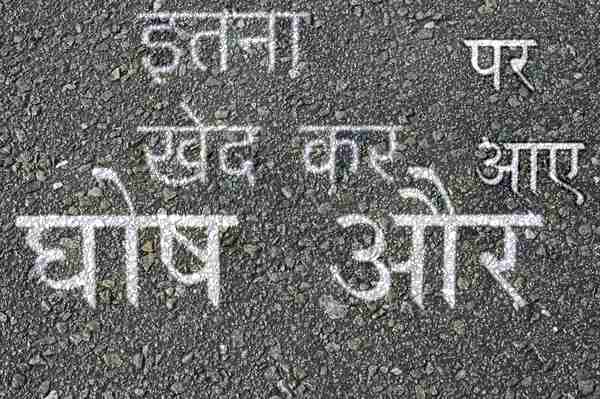 इतना पर
खेद कर आए
घोष और